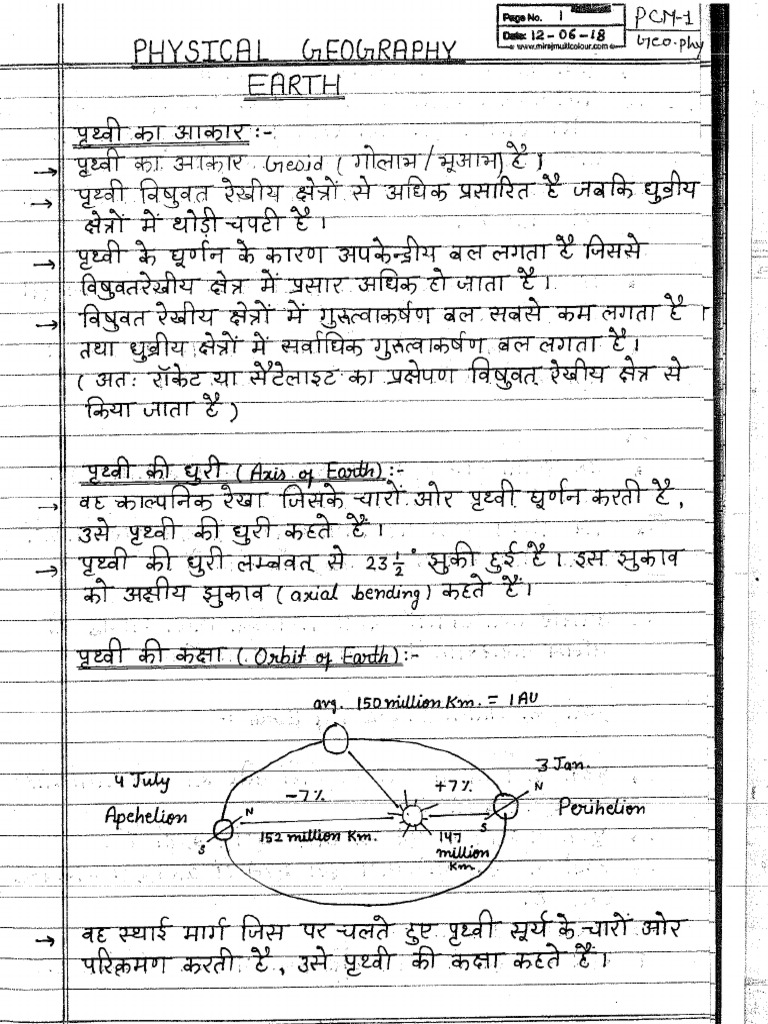 Page No. 1
Date: 12-06-18
www.mirajmulticolour.com
PCM-1
Geo.phy
PHYSICAL GEOGRAPHY
EARTH
पृथ्वी का आकार :-
→ पृथ्वी का आकार Geoid ( गोलाभ / भूआभ) है।
→ पृथ्वी विषुवत रेखीय क्षेत्रों से अधिक प्रसारित है जबकि ध्रुवीय
क्षेत्रों में थोड़ी चपटी है।
→ पृथ्वी के घूर्णन के कारण अपकेन्द्रीय बल लगता है जिससे
विषुवतरेखीय क्षेत्र में प्रसार अधिक हो जाता है।
→ विषुवत रेखीय क्षेत्रों में गुरुत्वाकर्षण बल सबसे कम लगता है।
तथा ध्रुवीय क्षेत्रों में सर्वाधिक गुरुत्वाकर्षण बल लगता है।
( अतः रॉकेट या सैटेलाइट का प्रक्षेपण विषुवत् रेखीय क्षेत्र से
किया जाता है )
पृथ्वी की धुरी ( Axis of Earth) :-
→ वह काल्पनिक रेखा जिसके चारों ओर पृथ्वी घूर्णन करती है,
उसे पृथ्वी की धुरी कहते हैं।
→ पृथ्वी की धुरी लम्बवत् से 23 1/2° झुकी हुई है। इस झुकाव
को अक्षीय झुकाव ( axial bending) कहते हैं।
पृथ्वी की कक्षा ( Orbit of Earth) :-
avg. 150 million Km. = 1 AU
4 July
Apehelion
-7%
+7%
3 Jan.
Perihelion
N
S
N
S
152 million Km.
147
million
Km.
→ वह स्थाई मार्ग जिस पर चलते हुए पृथ्वी सूर्य के चारों ओर
परिक्रमण करती है, उसे पृथ्वी की कक्षा कहते हैं।